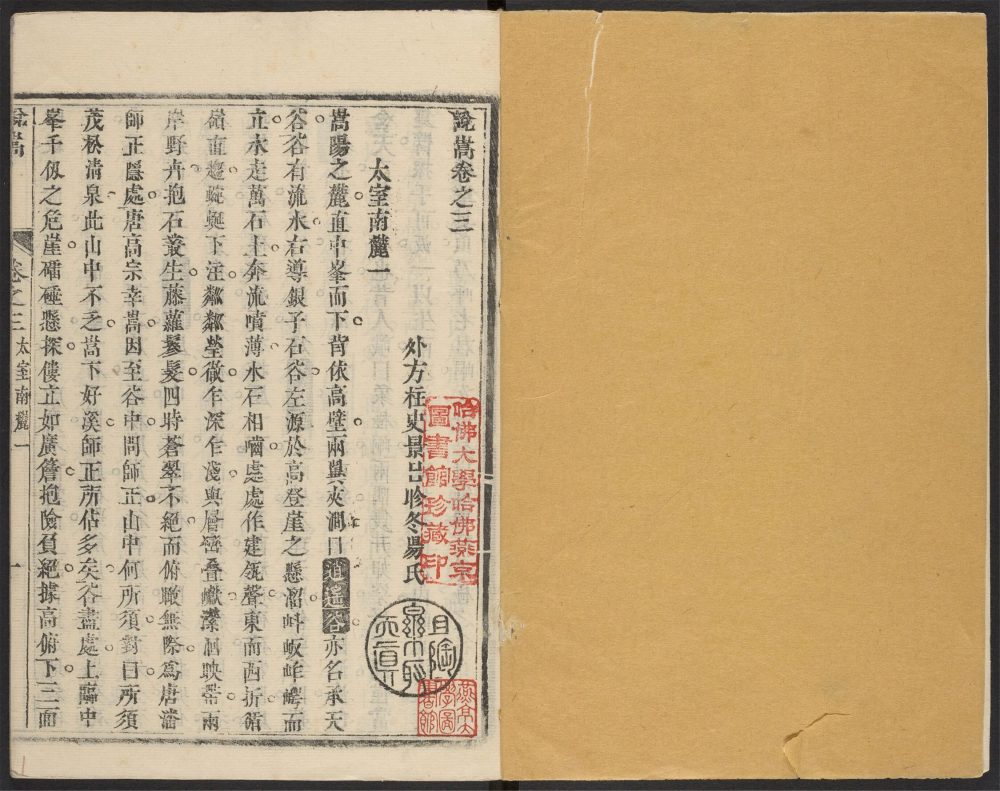 說嵩卷之三
太室南麓一
外方柱史景日昣冬易氏
嵩陽之麓直中峯而下背依高壁兩巽夾澗曰逍遙谷亦名承天
谷谷有流水右導銀子石谷左源於高登崖之懸溜㟁㟁岝崿而
立水走萬石上奔流噴薄水石相嚙處處作建瓴聲東而西折循
嶺直趨蜿蜒下注粼粼瑩徹乍深乍淺與層巒疊巘瀠洄映帶兩
岸野卉抱石叢生藤蘿鬖髮四時蒼翠不絕而俯瞰無際爲唐潘
師正隱處唐高宗幸嵩因至谷中問師正山中何所須對曰所須
茂松清泉此山中不乏嵩下好溪師正所佔多矣谷盡處上臨中
峯千仭之危崖礌硾懸探僂立如廣簷抱險負絕據高俯下三面
說嵩
卷之三
太室南麓一
一
哈佛大學哈佛燕京
圖書館珍藏印